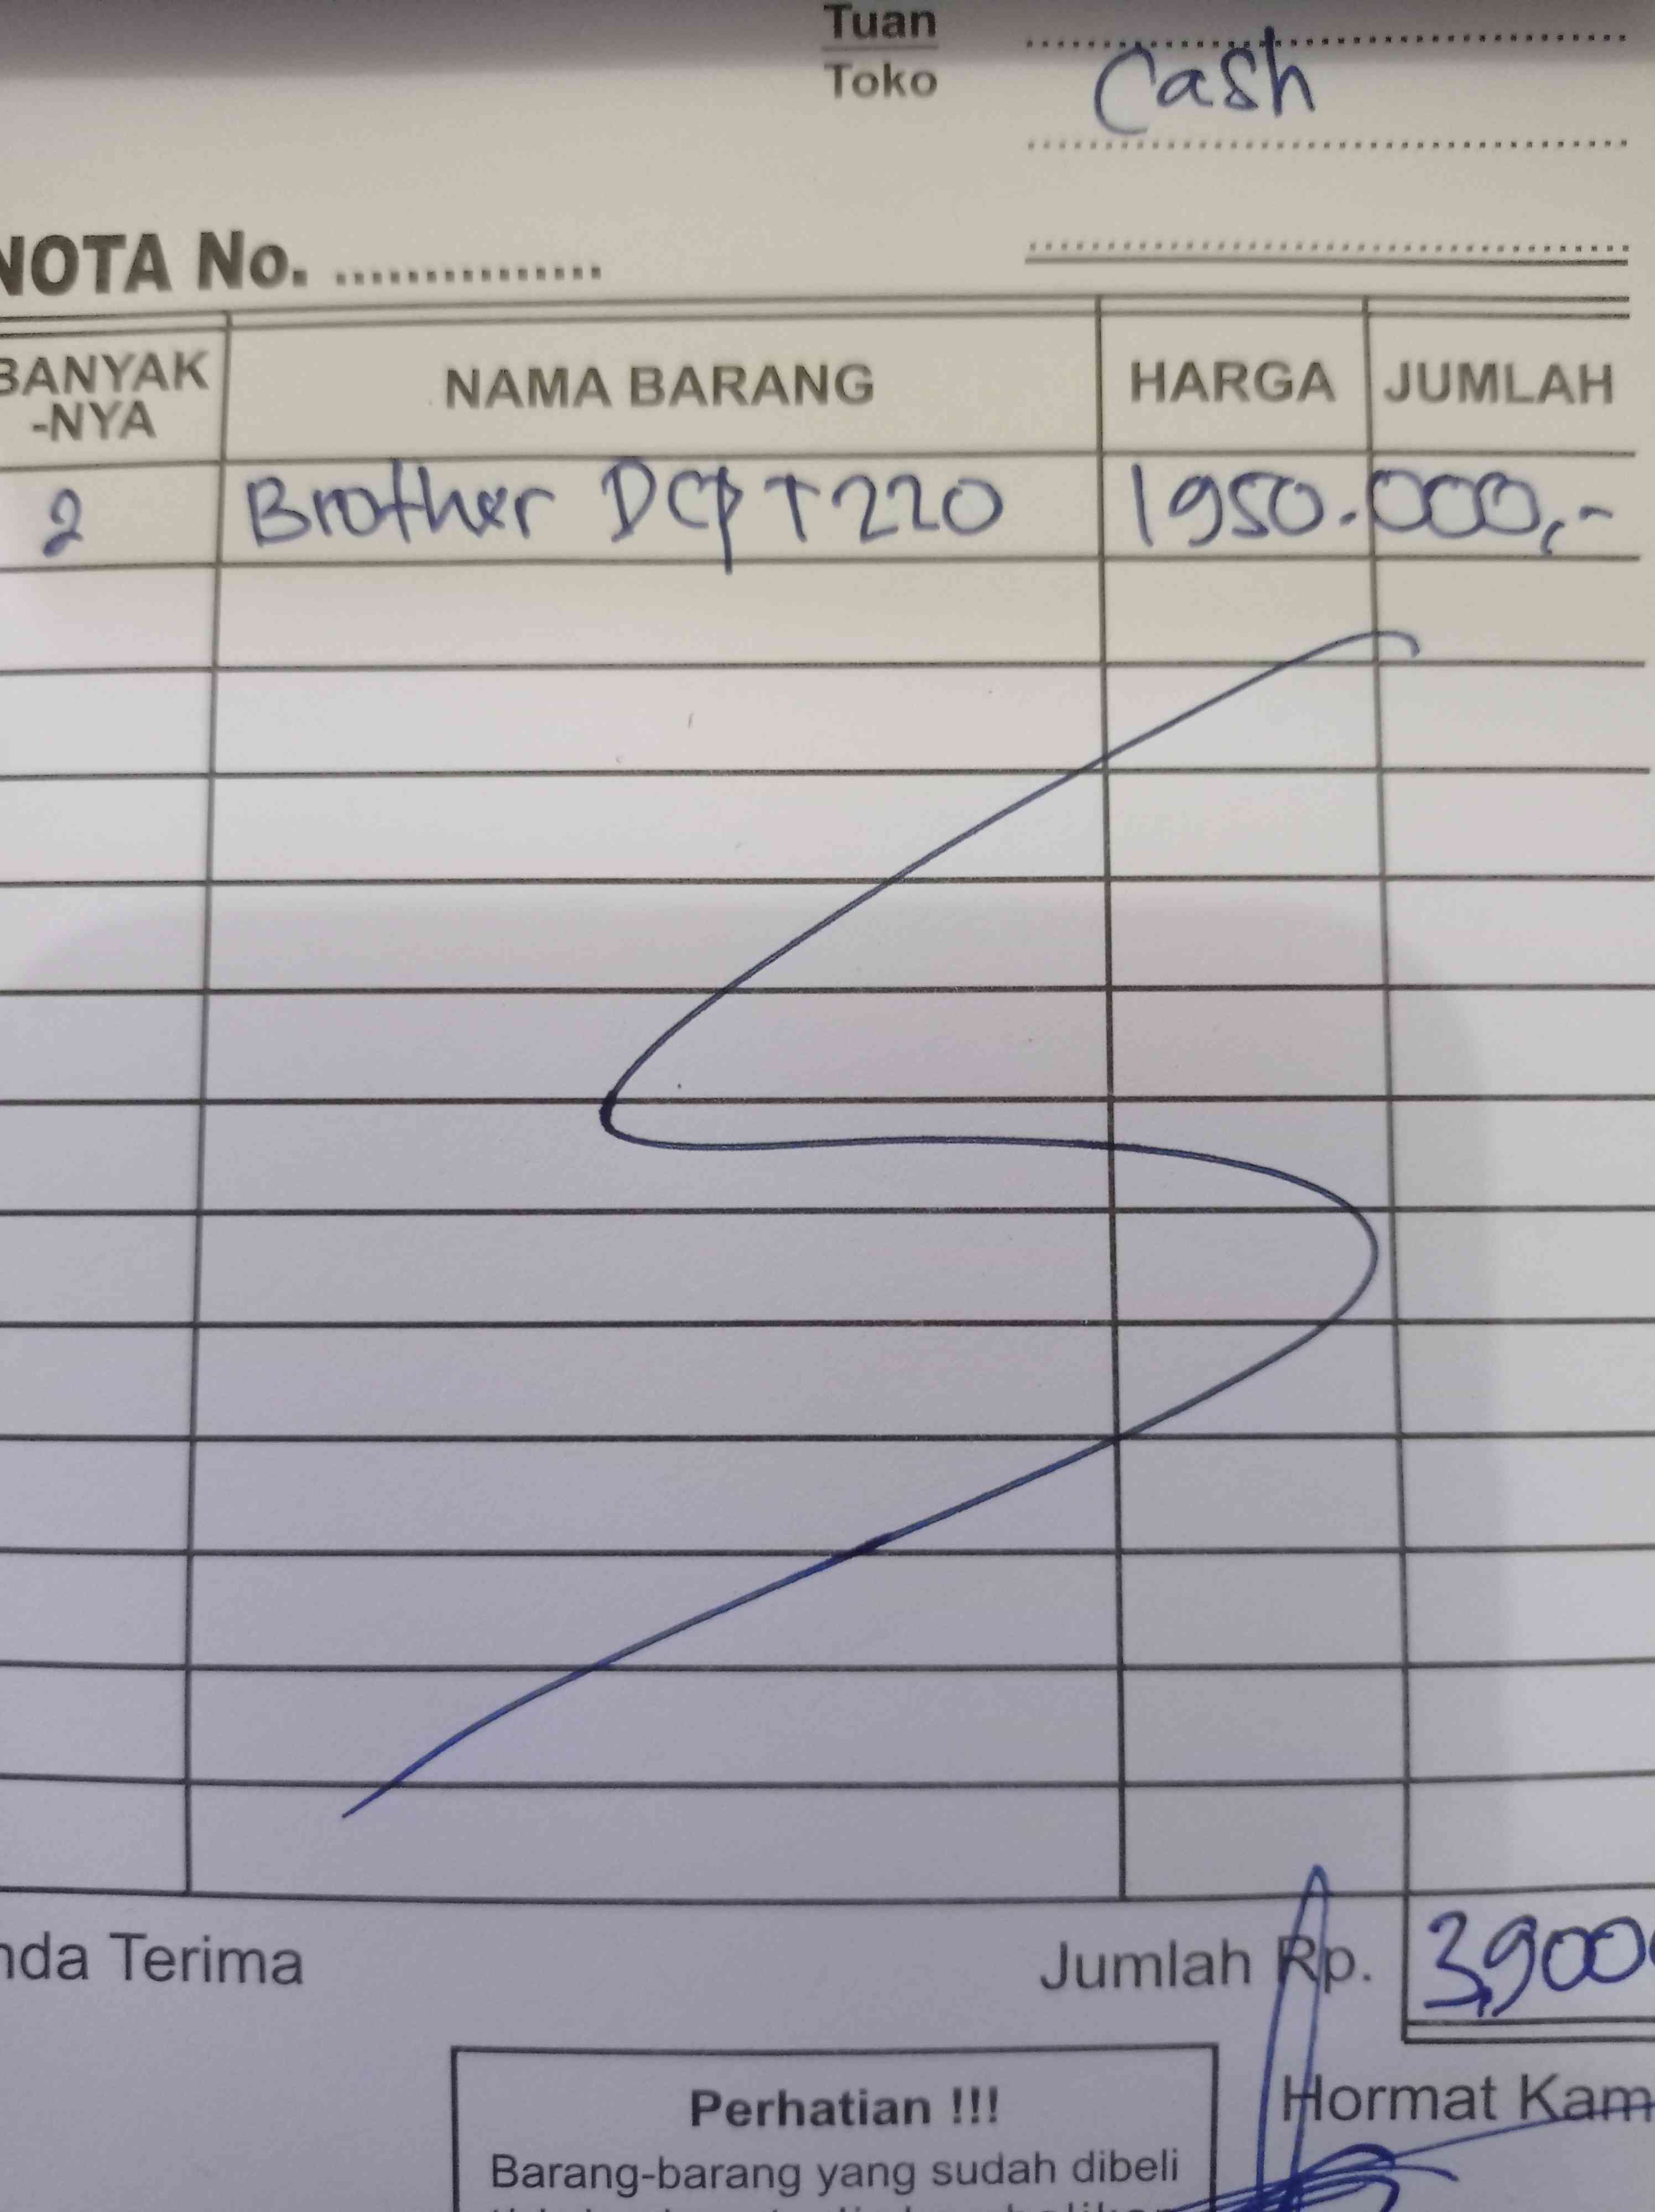 Tuan
Toko
Cash
NOTA No. ...............
BANYAK NAMA BARANG HARGA JUMLAH
-NYA
2 Brother DCP T220 1950.000,-
nda Terima Jumlah Rp. 3,900
Perhatian !!! Hormat Kam
Barang-barang yang sudah dibeli